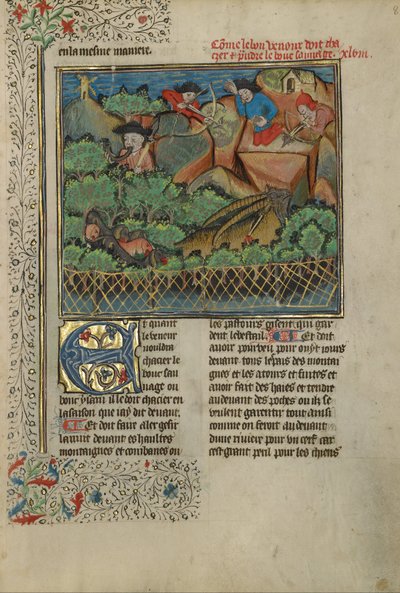 en la mesme maniere.
Cõme le bon veneur doit cha
cier et p̃ndre le bouc sauvage. xlviii.
Et quant
le veneur
vouldra
chacier le
bouc sau
vage ou
bouc ysarus il le doit chacier en
la saison que iay dit devant.
Et doit faire aler gesir
la nuit devant es haultes
montaignes et cabanes ou
les pastours gisent qui gar
dent le bestail. Et doit
avoir pourveu pour onze iours
devant tous les pais des mont
aignes et les atours et fuites et
avoir fait des haies et tendre
au devant des roches ou ilz se
veulent garentir tout ainsi
comme on feroit au devant
dune riviere pour un cerf. car
cest grant peril pour les chiens